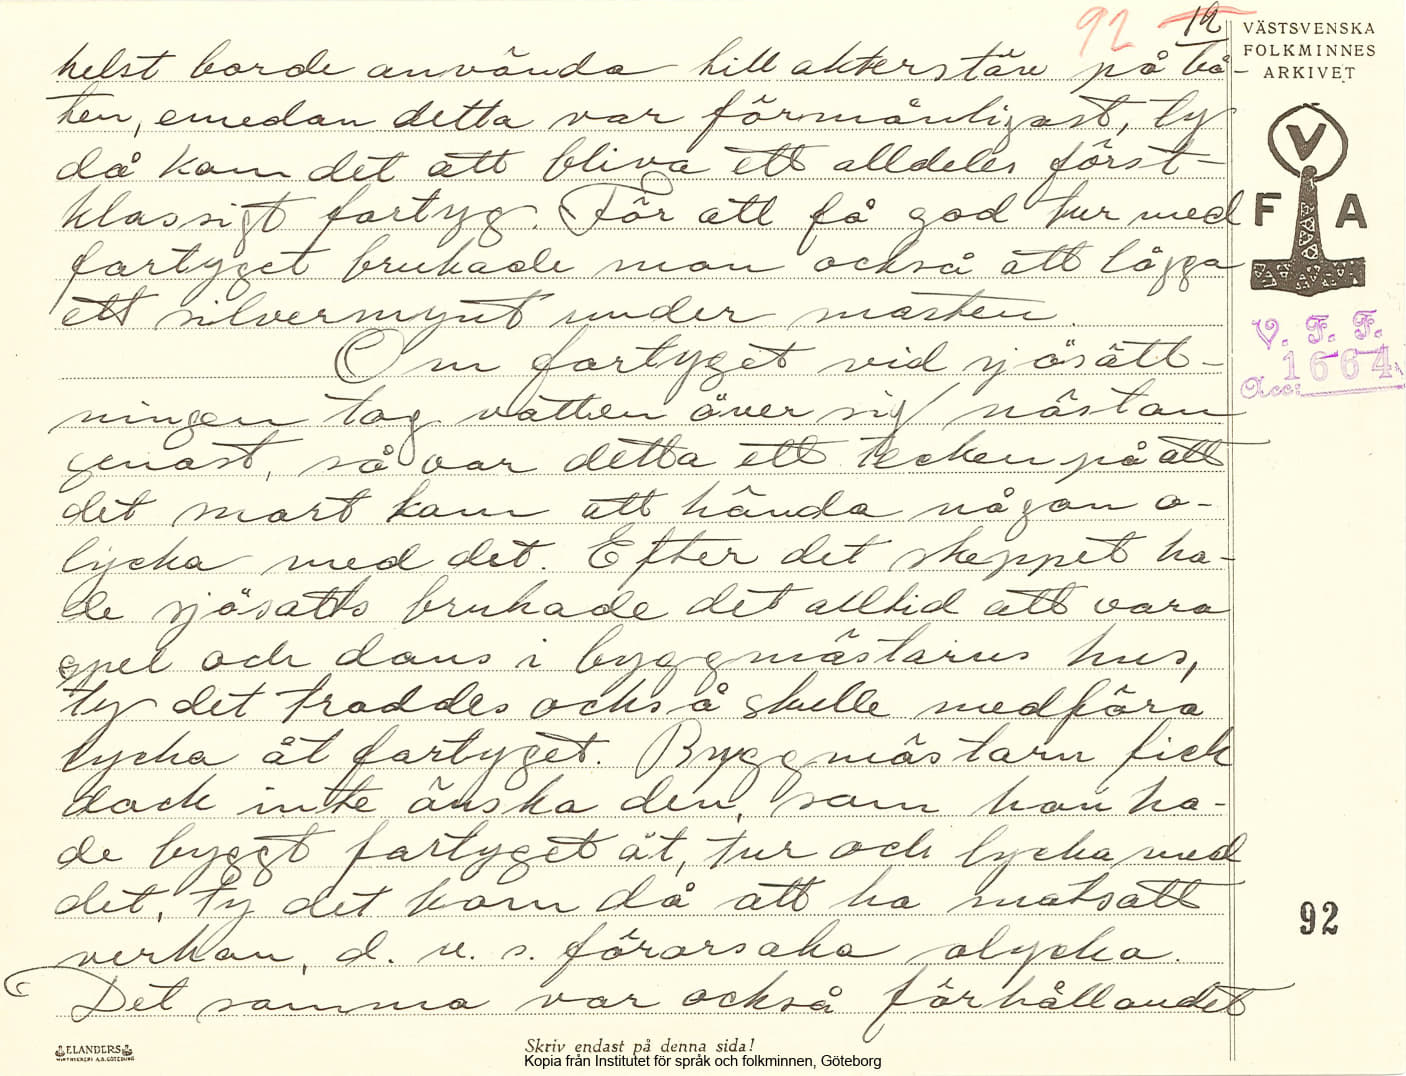 92 12
VÄSTSVENSKA
FOLKMINNES
ARKIVET
V
F A
V. F. F.
Acc: 1664
helst borde använda till akterstäv på bå-
ten, emedan detta var förmånligast, ty
då kom det att bliva ett alldeles först-
klassigt fartyg. För att få god tur med
fartyget brukade man också att lägga
ett silvermynt under masten.
Om fartyget vid sjösätt-
ningen tog vatten över sig nästan
genast, så var detta ett tecken på att
det snart kom att hända någon o-
lycka med det. Efter det skeppet ha-
de sjösatts brukade det alltid att vara
spel och dans i byggmästarns hus,
ty det troddes också skulle medföra
lycka åt fartyget. Byggmästarn fick
dock inte önska den, som han ha-
de byggt fartyget åt, tur och lycka med
det, ty det kom då att ha motsatt
verkan, d. v. s. förorsaka olycka.
Det samma var också förhållandet
92
ELANDERS
Skriv endast på denna sida!
Kopia från Institutet för språk och folkminnen, Göteborg